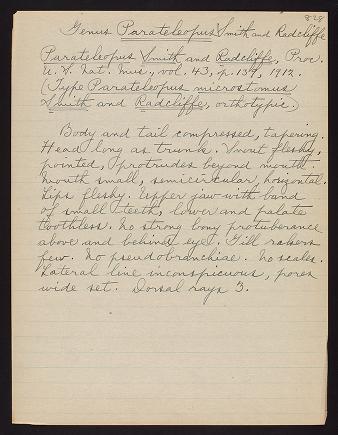 828
Genus Parateleopus Smith and Radcliffe
Parateleopus Smith and Radcliffe, Proc.
U. S. Nat. Mus., vol. 43, p. 139, 1912.
(Type Parateleopus microstomus
Smith and Radcliffe, orthotypic.)
Body and tail compressed, tapering.
Head long as trunk. Snout fleshy,
pointed, protrudes beyond mouth.
Mouth small, semicircular, horizontal.
Lips fleshy. Upper jaw with band
of small teeth, lower and palate
toothless. No strong bony protuberance
above and behind eye. Gill rakers
few. No pseudobranchiae. No scales.
Lateral line inconspicuous, pores
wide set. Dorsal rays 3.